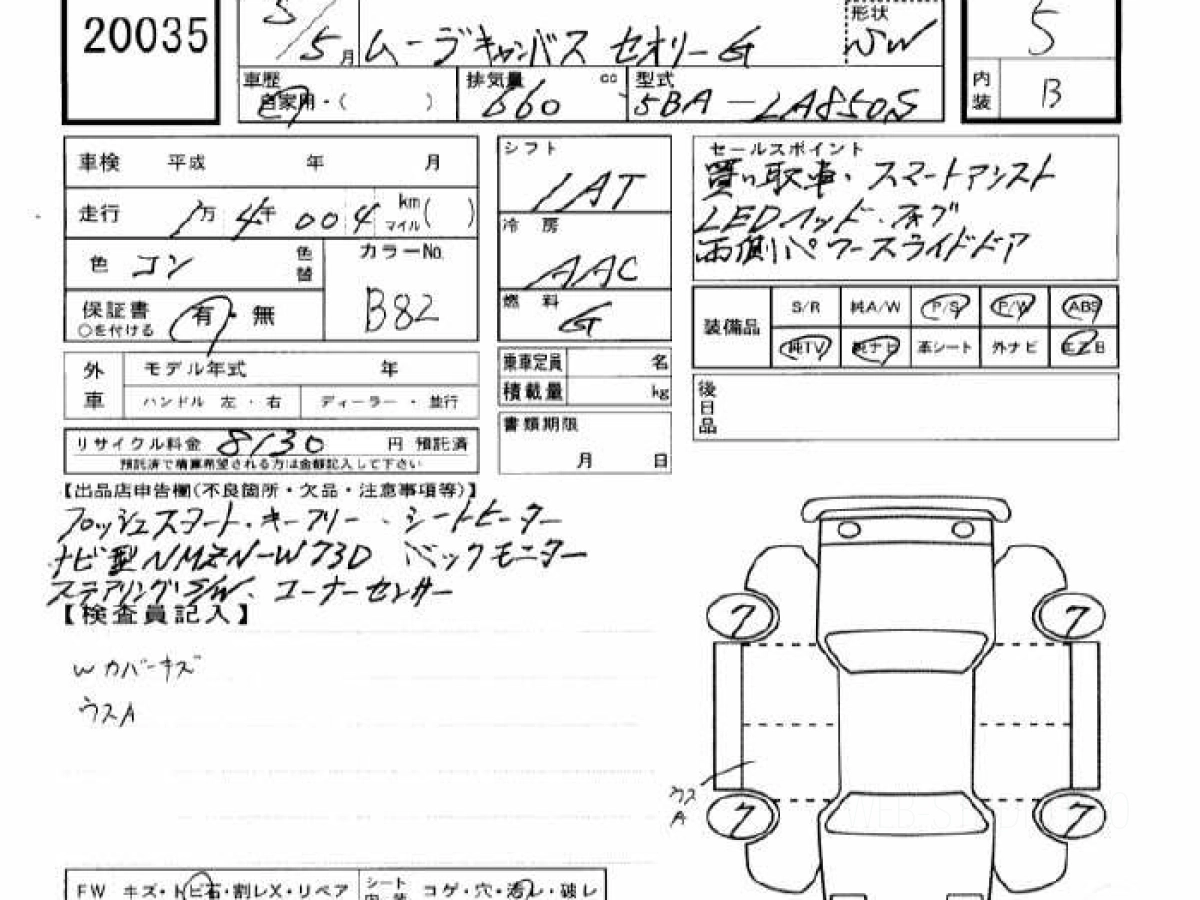 20035
5/5月
ムーヴキャンバス セオリーG
形状
SW
5
車歴
自家用・( )
排気量 cc
660
型式
5BA-LA850S
内装 B
車検 平成 年 月
走行 1万4千004 km マイル( )
色 コン 色替
カラーNo.
B82
保証書
○を付ける
有・無
外車 モデル年式 年
ハンドル 左・右 ディーラー・並行
リサイクル料金 8130 円 預託済
預託済で積算希望される方は金額記入して下さい
シフト
IAT
冷房
AAC
燃料
G
乗車定員 名
積載量 kg
書類期限
月 日
セールスポイント
買い取車・スマートアシスト
LEDヘッド・フォグ
両側パワースライドドア
装備品 S/R 純A/W P/S P/W ABS
純TV 純ナビ 革シート 外ナビ エアB
後日品
【出品店申告欄(不良箇所・欠品・注意事項等)】
プッシュスタート・キーフリー・シートヒーター
ナビ型NMZN-W73D バックモニター
ステアリングS/W・コーナーセンサー
【検査員記入】
Wカバーキズ
ウスA
7 7
ウスA
7 7
FW キズ・トビ石・割レX・リペア
シート内装 コゲ・穴・汚レ・破レ